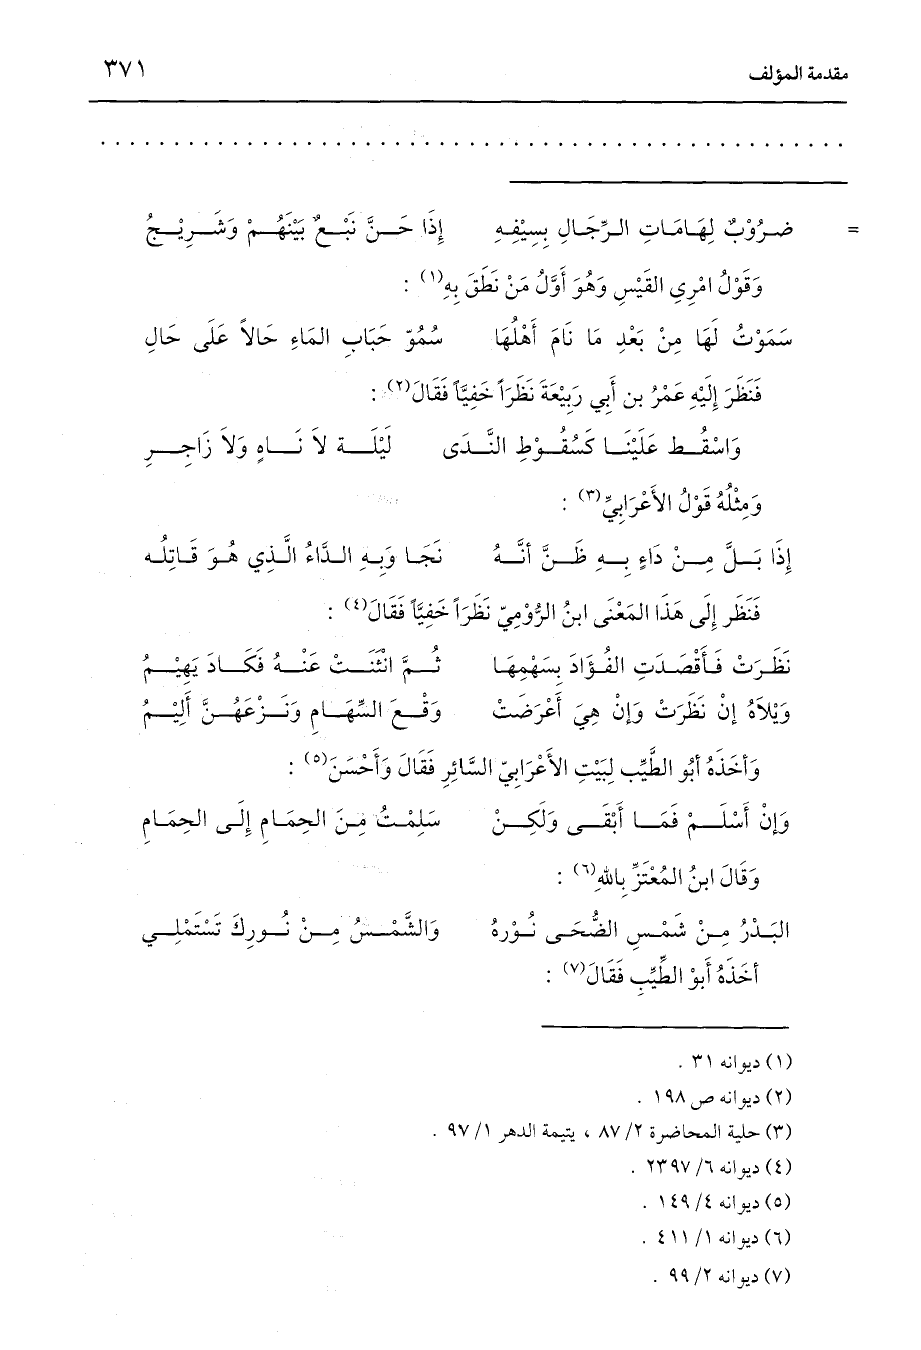 مقدمة المؤلف ٣٧١
. . . . . . . . . . . . . . . . . . . . . . . . . . . . . . . . . . . . . . . . . . . . . . . . . .
= ضَرُوْبٌ لِهَامَاتِ الرِّجَالِ بِسِيْفِهِ إِذَا حَنَّ نَبْعٌ بَيْنَهُمْ وَشَرِيْجُ
وَقَوْلُ امْرِي القَيْسِ وَهُوَ أَوَّلُ مَنْ نَطَقَ بِهِ(١) :
سَمَوْتُ لَهَا مِنْ بَعْدِ مَا نَامَ أَهْلُهَا سُمُوّ حَبَابِ المَاءِ حَالاً عَلَى حَالِ
فَنَظَرَ إِلَيْهِ عَمْرُ بن أَبِي رَبِيْعَةَ نَظَرَاً خَفِيَّاً فَقَالَ(٢) :
وَاسْقُط عَلَيْنَا كَسُقُوْطِ النَّدَى لَيْلَة لاَ نَاهٍ وَلاَ زَاجِرِ
وَمِثْلُهُ قَوْلُ الأَعْرَابِيِّ(٣) :
إِذَا بَلَّ مِنْ دَاءٍ بِهِ ظَنَّ أَنَّهُ نَجَا وَبِهِ الدَّاءُ الَّذِي هُوَ قَاتِلُه
فَنَظَر إِلَى هَذَا المَعْنَى ابنُ الرُّوْمِيّ نَظَرَاً خَفِيَّاً فَقَالَ(٤) :
نَظَرَتْ فَأَقْصَدَتِ الفُؤَادَ بِسَهْمِهَا ثُمَّ انْثَنَتْ عَنْهُ فَكَادَ يَهِيْمُ
وَيْلاَهُ إِنْ نَظَرَتْ وَإِنْ هِيَ أَعْرَضَتْ وَقْعَ السِّهَامِ وَنَزْعَهُنَّ أَلِيْمُ
وَأَخَذَهُ أَبُو الطَّيِّب لِبَيْتِ الأَعْرَابِيّ السَّائِرِ فَقَالَ وَأَحْسَنَ(٥) :
وَإِنْ أَسْلَمْ فَمَا أَبْقَى وَلَكِنْ سَلِمْتُ مِنَ الحِمَامِ إِلَى الحِمَامِ
وَقَالَ ابنُ المُعْتَزِّ بِاللهِ(٦) :
البَدْرُ مِنْ شَمْسِ الضُّحَى نُوْرهُ وَالشَّمْسُ مِنْ نُورِكَ تَسْتَمْلِي
أَخَذَهُ أَبوْ الطِّيِّبِ فَقَالَ(٧) :
(١) ديوانه ٣١ .
(٢) ديوانه ص ١٩٨ .
(٣) حلية المحاضرة ٢/ ٨٧ ، يتيمة الدهر ١/ ٩٧ .
(٤) ديوانه ٦/ ٢٣٩٧ .
(٥) ديوانه ٤/ ١٤٩ .
(٦) ديوانه ١/ ٤١١ .
(٧) ديوانه ٢/ ٩٩ .